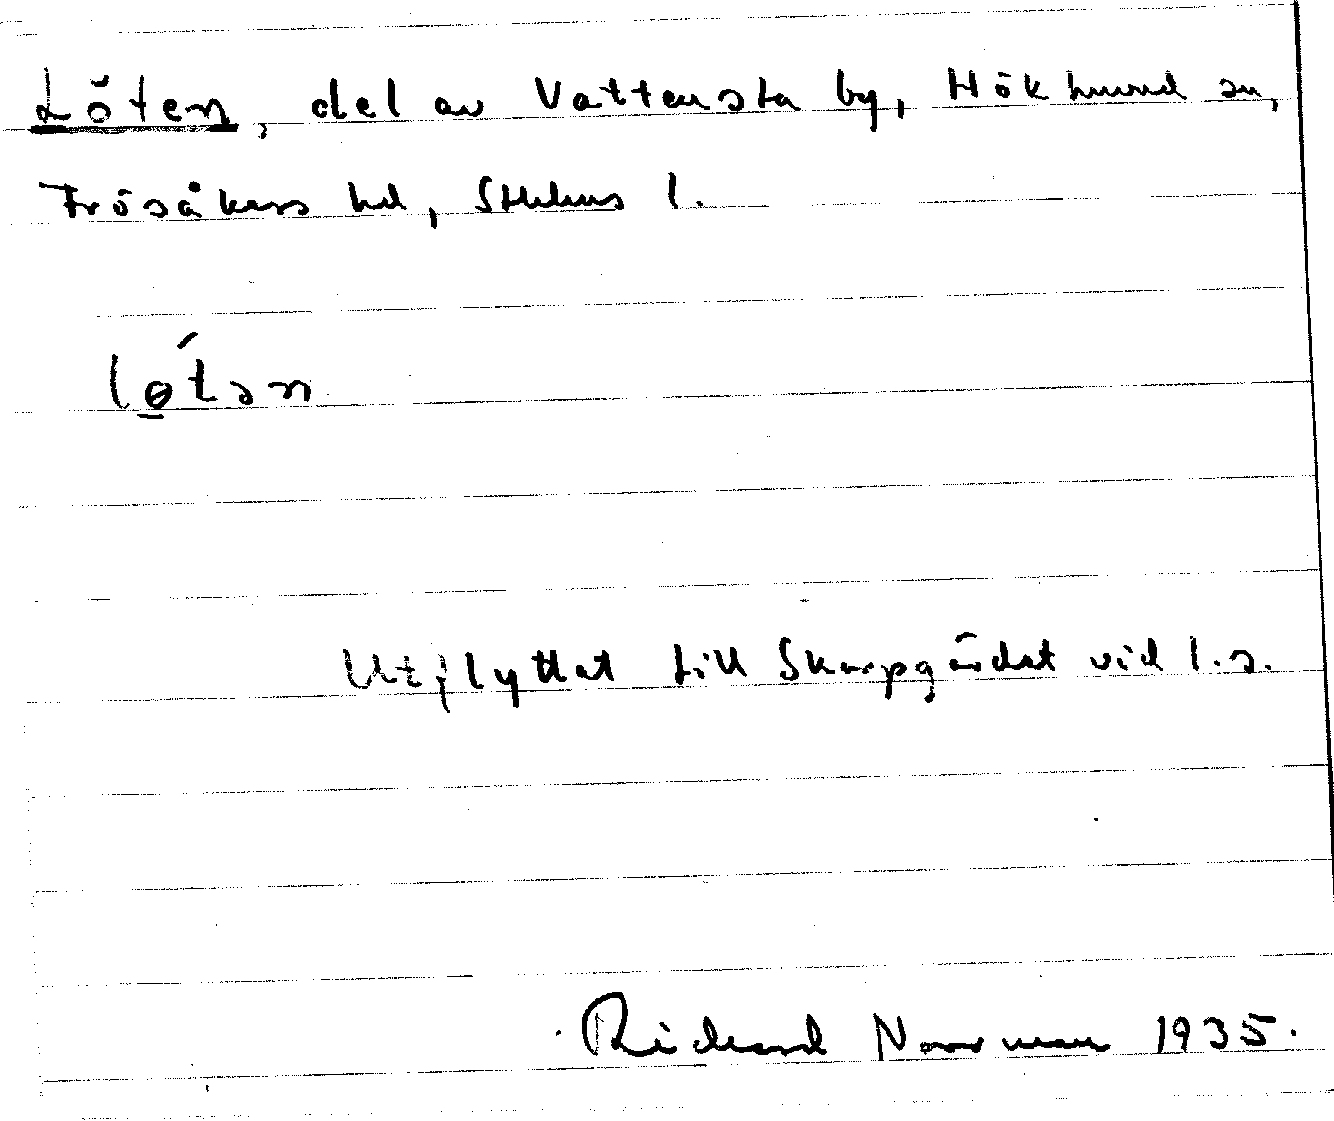 Löten, del av Vattensta by, Hökhuvud sn,
Frösåkers hd, Sthlms l.
lǿ̱tən
Utflyttat till Skarpgärdet vid l.s.
Richard Norrman 1935.